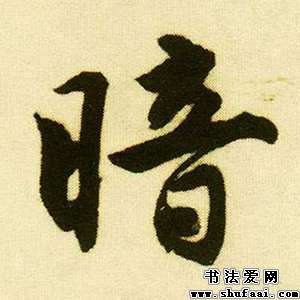 暗
书法爱网
www.shufaai.com